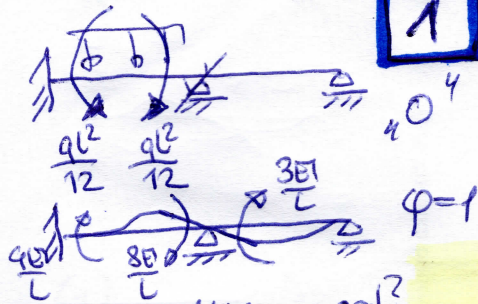 1
"0"
qL²
12
qL²
12
3EI
L
φ=1
L
8EI
L